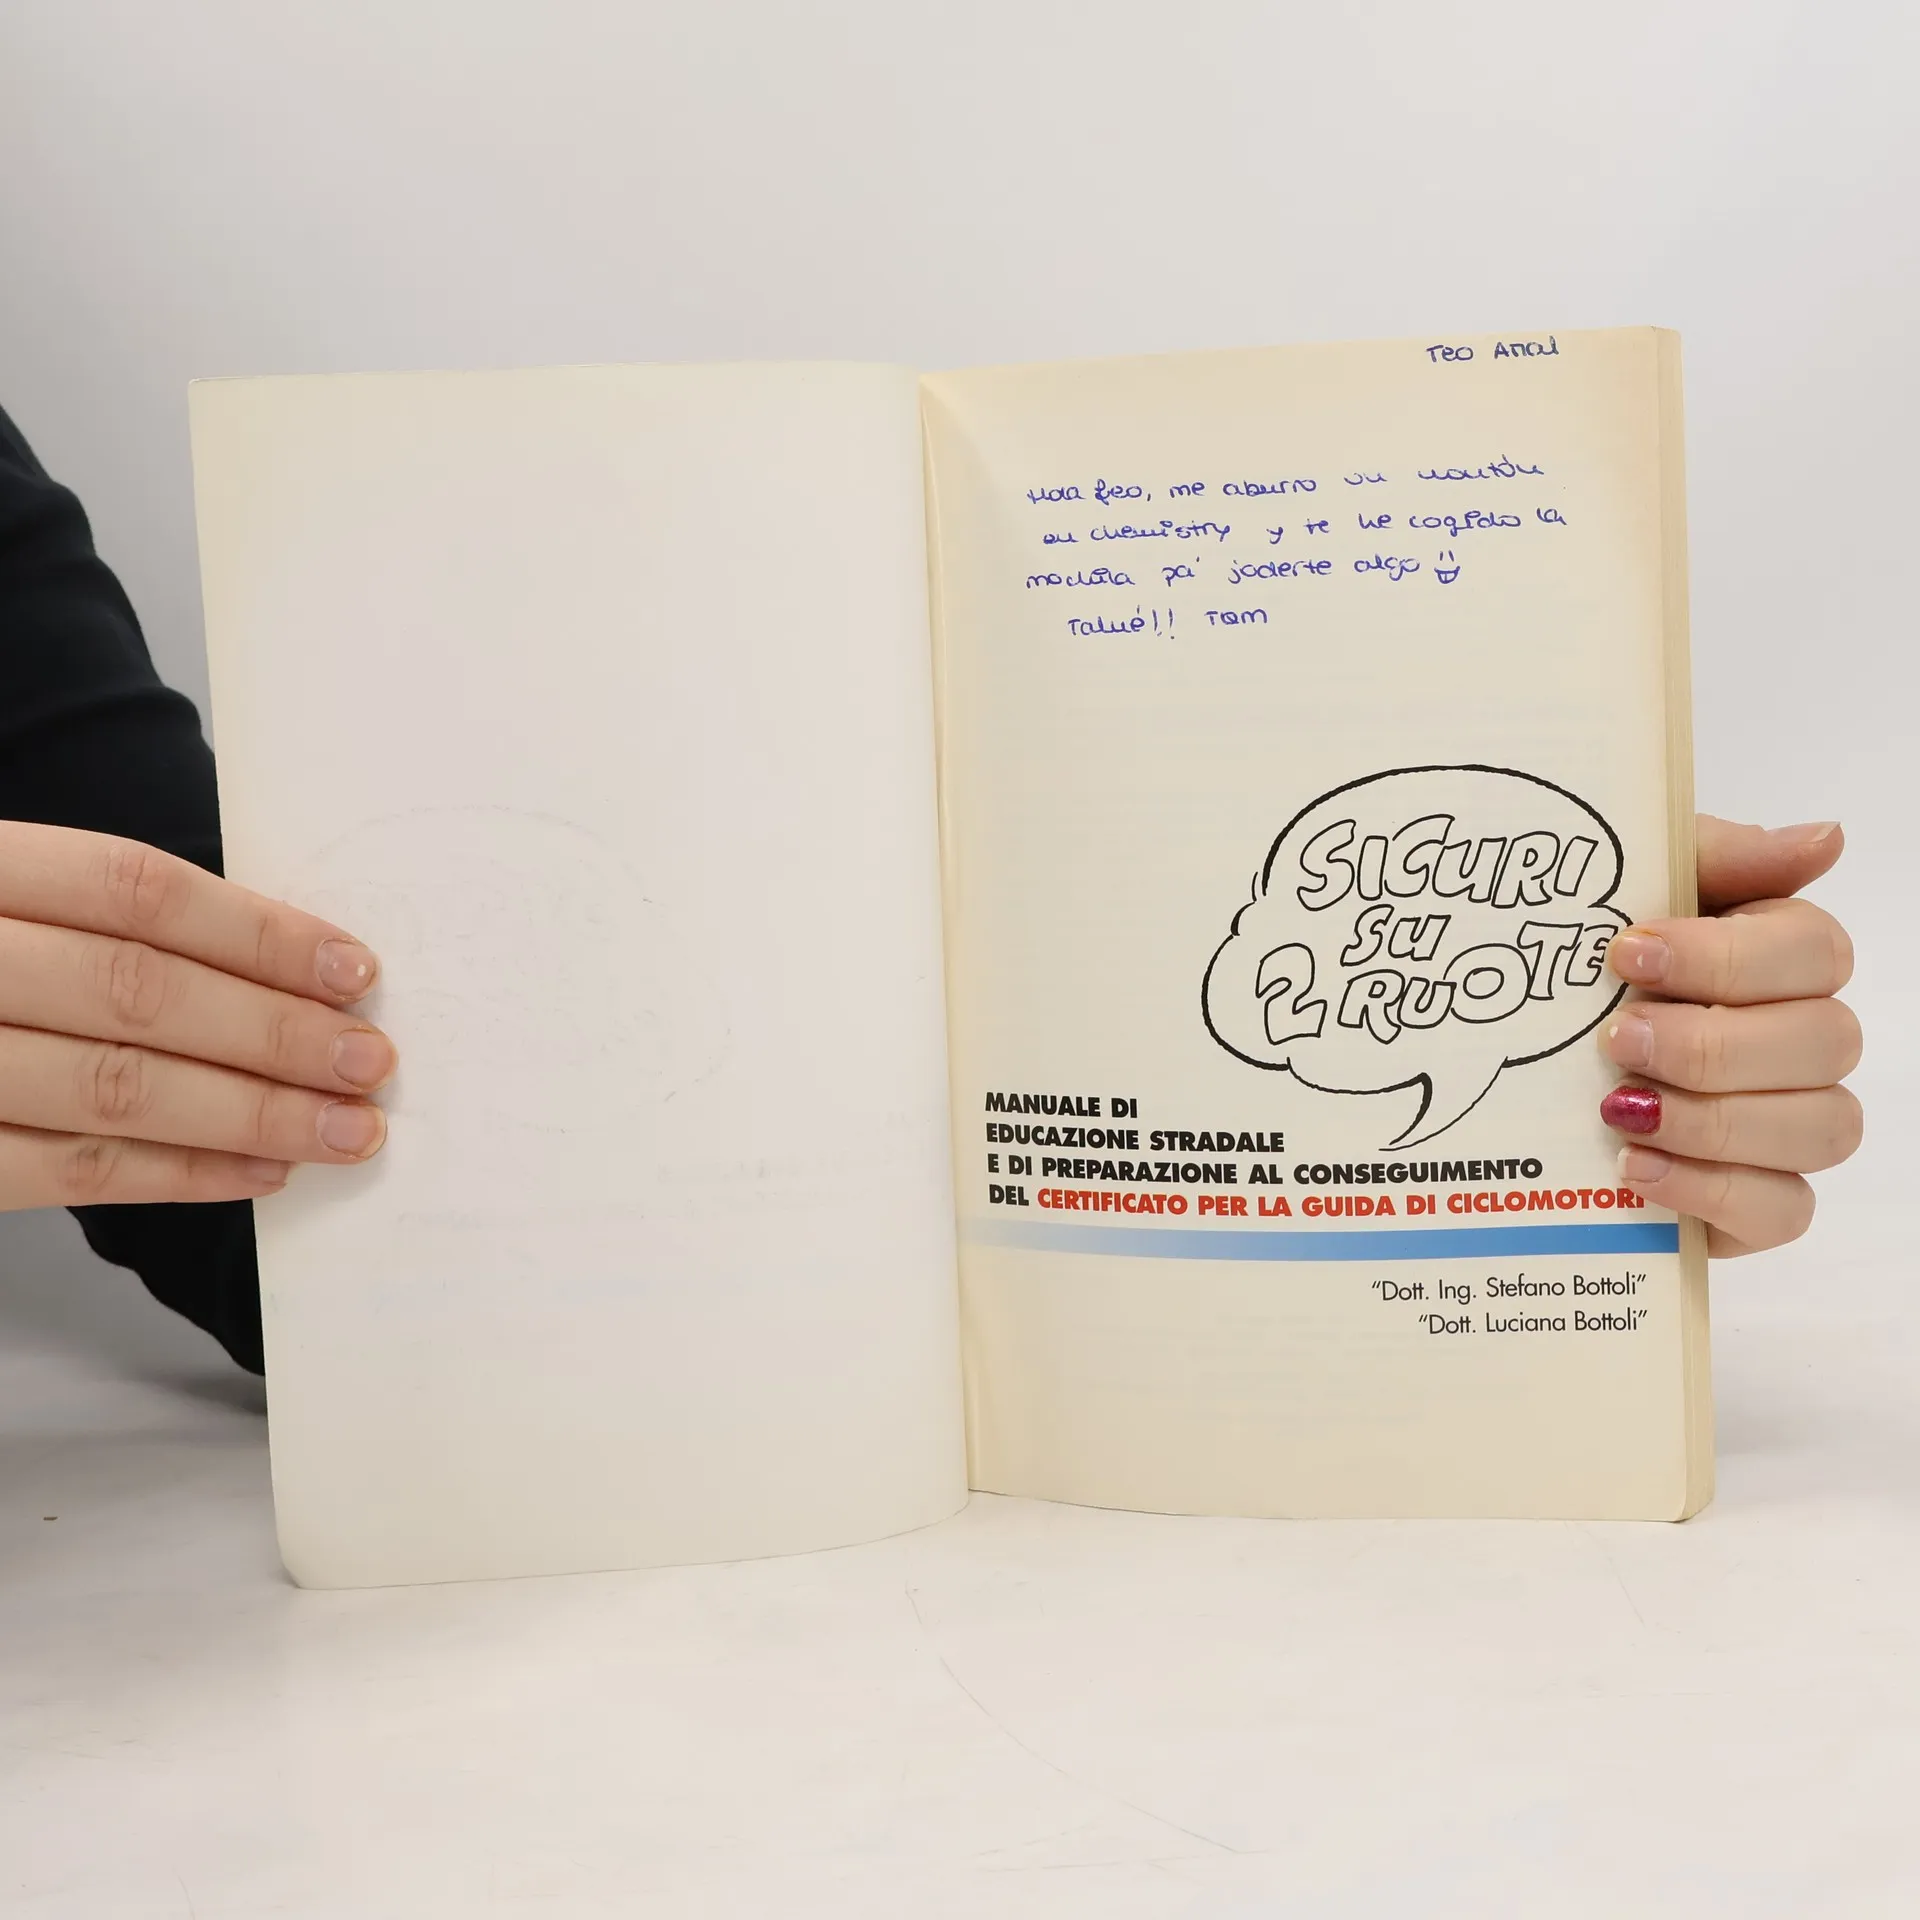 Teo
Hola feo, me aburro un montón
en chemistry y te he cogido la
mochila pa' joderte algo
Talué!! Tom
SICURI
SU
2 RUOTE
MANUALE DI
EDUCAZIONE STRADALE
E DI PREPARAZIONE AL CONSEGUIMENTO
DEL CERTIFICATO PER LA GUIDA DI CICLOMOTORI
“Dott. Ing. Stefano Bottoli”
“Dott. Luciana Bottoli”